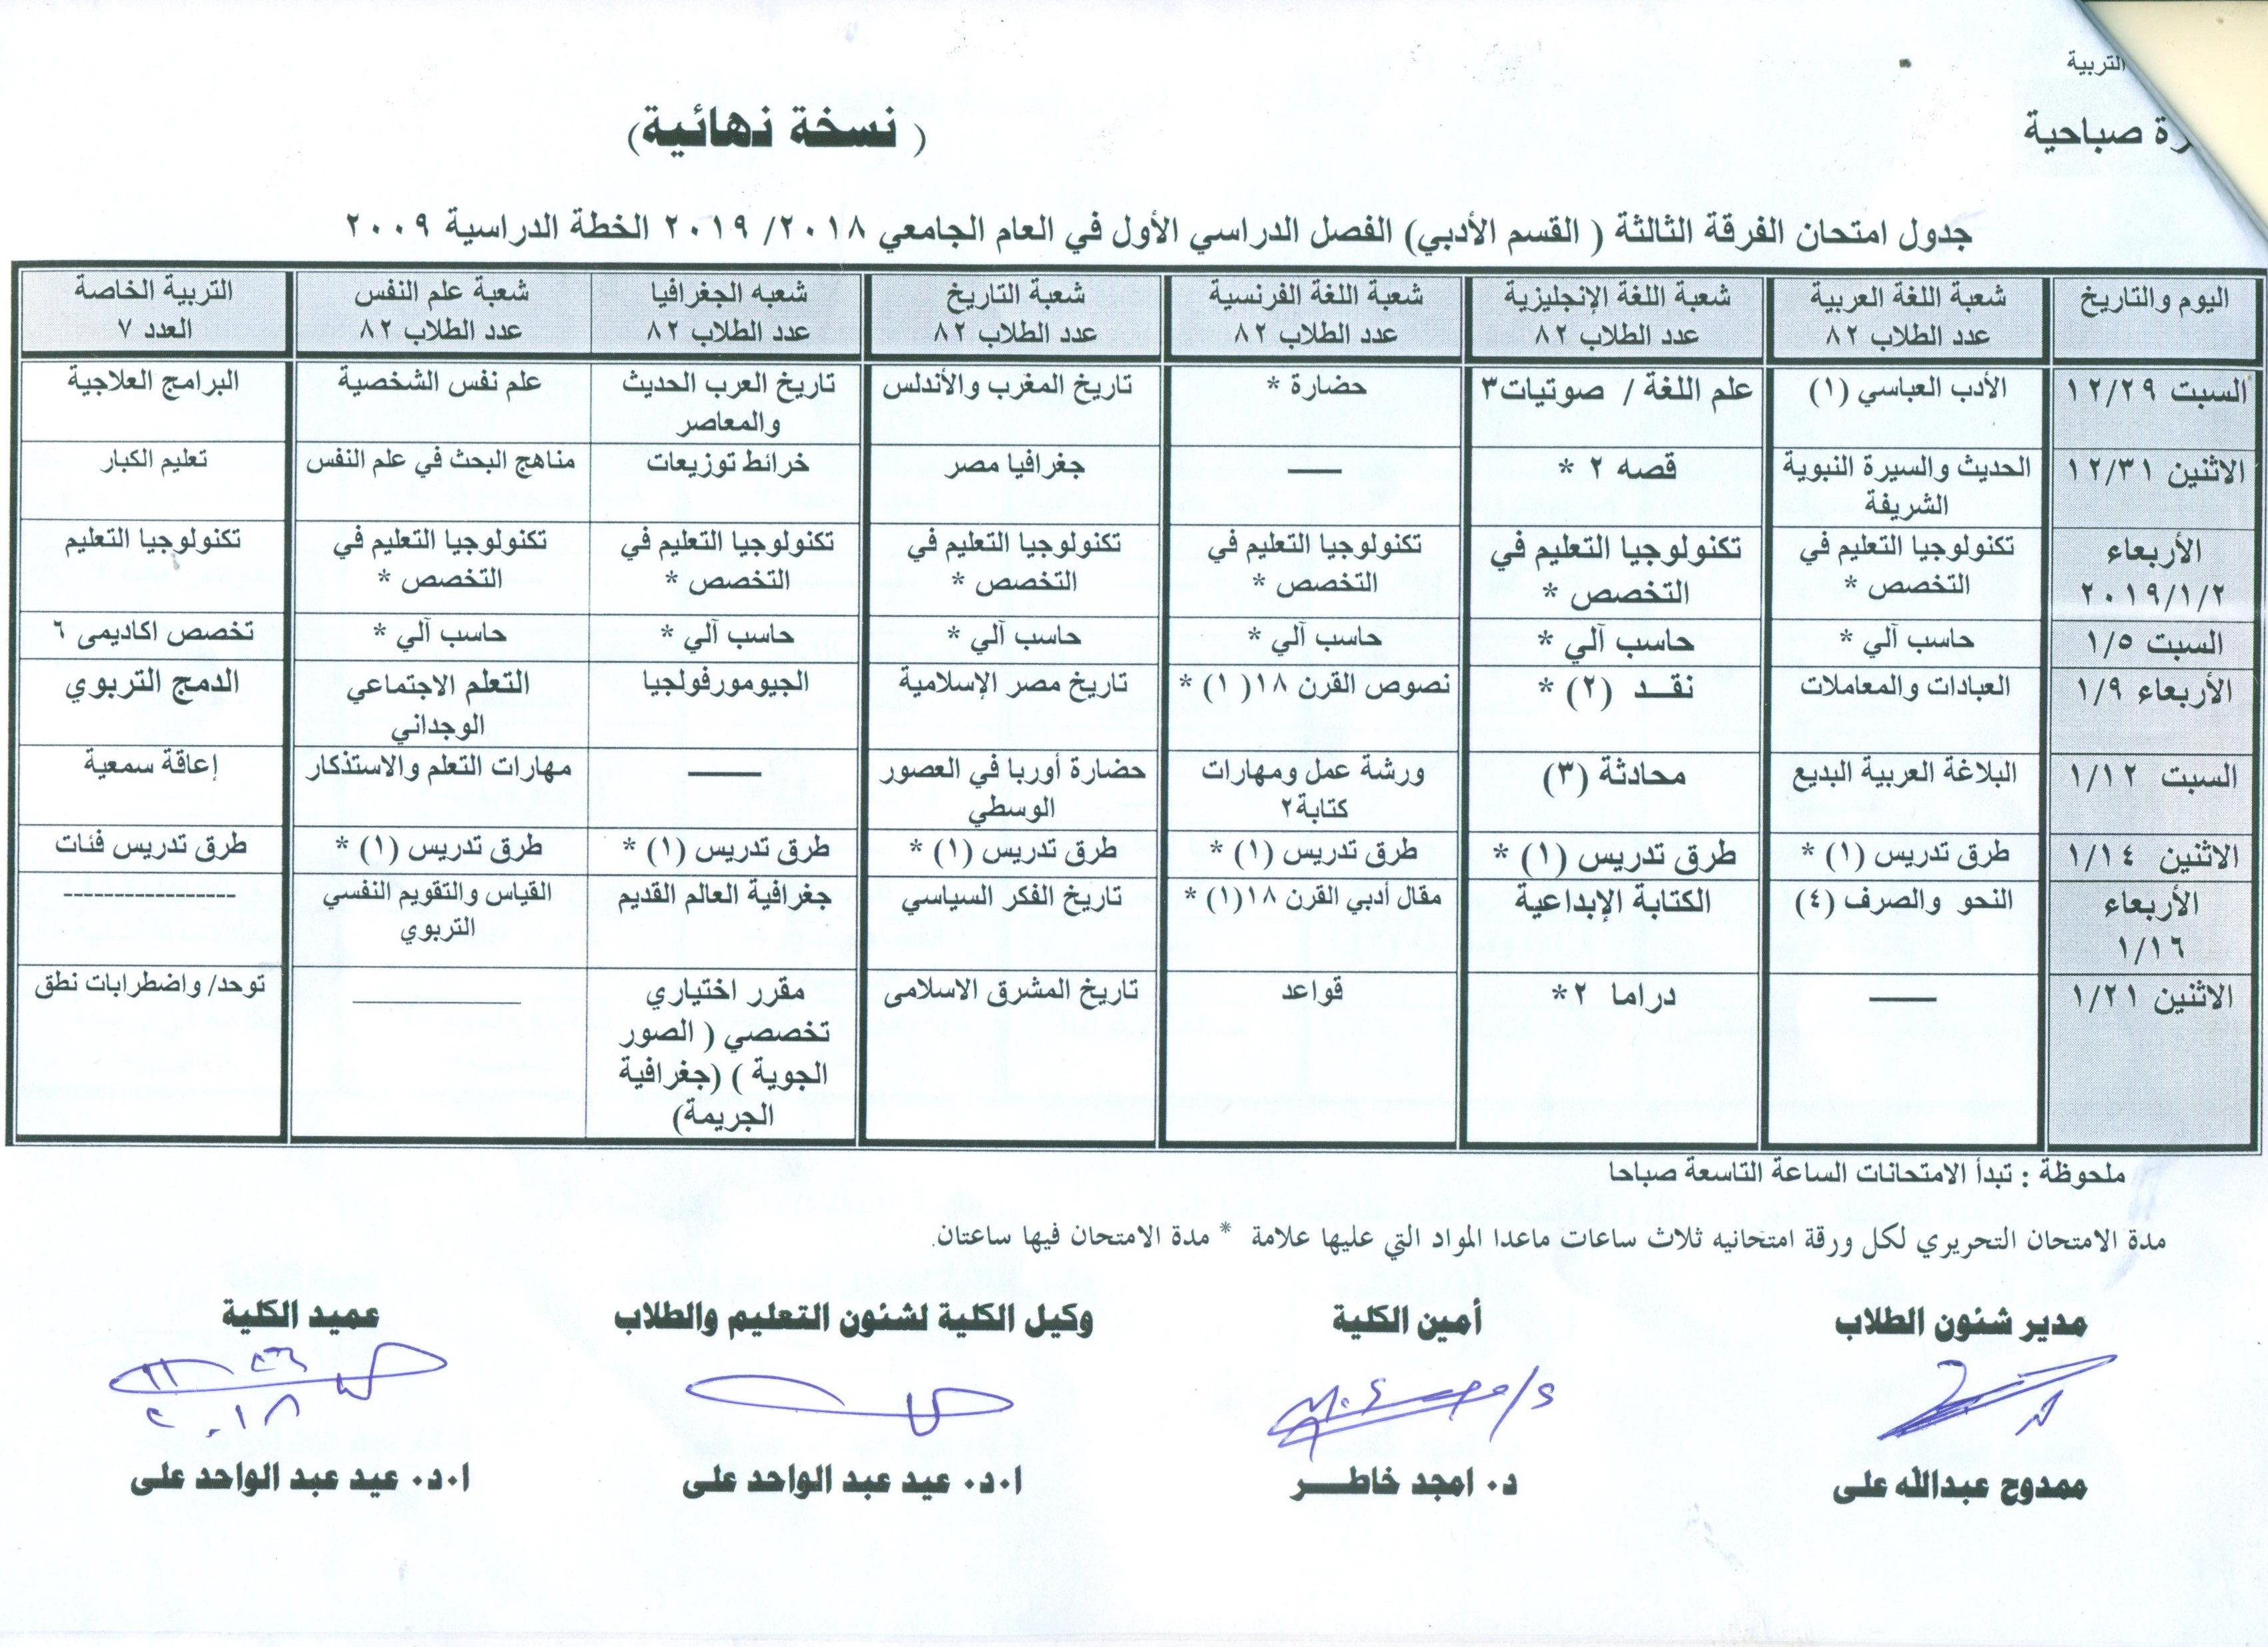 التربية
صباحية
( نسخة نهائية)
جدول امتحان الفرقة الثالثة ( القسم الأدبي) الفصل الدراسي الأول في العام الجامعي ٢٠١٨/ ٢٠١٩ الخطة الدراسية ٢٠٠٩
اليوم والتاريخ
شعبة اللغة العربية
عدد الطلاب ٨٢
شعبة اللغة الإنجليزية
عدد الطلاب ٨٢
شعبة اللغة الفرنسية
عدد الطلاب ٨٢
شعبة التاريخ
عدد الطلاب ٨٢
شعبه الجغرافيا
عدد الطلاب ٨٢
شعبة علم النفس
عدد الطلاب ٨٢
التربية الخاصة
العدد ٧
السبت ١٢/٢٩
الأدب العباسي (١)
علم اللغة / صوتيات٣
حضارة *
تاريخ المغرب والأندلس
تاريخ العرب الحديث
والمعاصر
علم نفس الشخصية
البرامج العلاجية
الاثنين ١٢/٣١
الحديث والسيرة النبوية
الشريفة
قصه ٢ *
——
جغرافيا مصر
خرائط توزيعات
مناهج البحث في علم النفس
تعليم الكبار
الأربعاء
٢٠١٩/١/٢
تكنولوجيا التعليم في
التخصص *
تكنولوجيا التعليم في
التخصص *
تكنولوجيا التعليم في
التخصص *
تكنولوجيا التعليم في
التخصص *
تكنولوجيا التعليم في
التخصص *
تكنولوجيا التعليم في
التخصص *
تكنولوجيا التعليم
السبت ١/٥
حاسب آلي *
حاسب آلي *
حاسب آلي *
حاسب آلي *
حاسب آلي *
حاسب آلي *
تخصص اكاديمى ٦
الأربعاء ١/٩
العبادات والمعاملات
نقــد (٢) *
نصوص القرن ١٨( ١) *
تاريخ مصر الإسلامية
الجيومورفولجيا
التعلم الاجتماعي
الوجداني
الدمج التربوي
السبت ١/١٢
البلاغة العربية البديع
محادثة (٣)
ورشة عمل ومهارات
كتابة٢
حضارة أوربا في العصور
الوسطي
——
مهارات التعلم والاستذكار
إعاقة سمعية
الاثنين ١/١٤
طرق تدريس (١) *
طرق تدريس (١) *
طرق تدريس (١) *
طرق تدريس (١) *
طرق تدريس (١) *
طرق تدريس (١) *
طرق تدريس فئات
الأربعاء
١/١٦
النحو والصرف (٤)
الكتابة الإبداعية
مقال أدبي القرن ١٨(١) *
تاريخ الفكر السياسي
جغرافية العالم القديم
القياس والتقويم النفسي
التربوي
--------------------
الاثنين ١/٢١
——
دراما ٢*
قواعد
تاريخ المشرق الاسلامى
مقرر اختياري
تخصصي ( الصور
الجوية ) (جغرافية
الجريمة)
____________
توحد/ واضطرابات نطق
ملحوظة : تبدأ الامتحانات الساعة التاسعة صباحا
مدة الامتحان التحريري لكل ورقة امتحانيه ثلاث ساعات ماعدا المواد التي عليها علامة * مدة الامتحان فيها ساعتان.
مدير شئون الطلاب
أمين الكلية
وكيل الكلية لشئون التعليم والطلاب
عميد الكلية
٢٠١٨
ممدوح عبدالله على
د. امجد خاطـــر
ا.د. عيد عبد الواحد على
ا.د. عيد عبد الواحد على